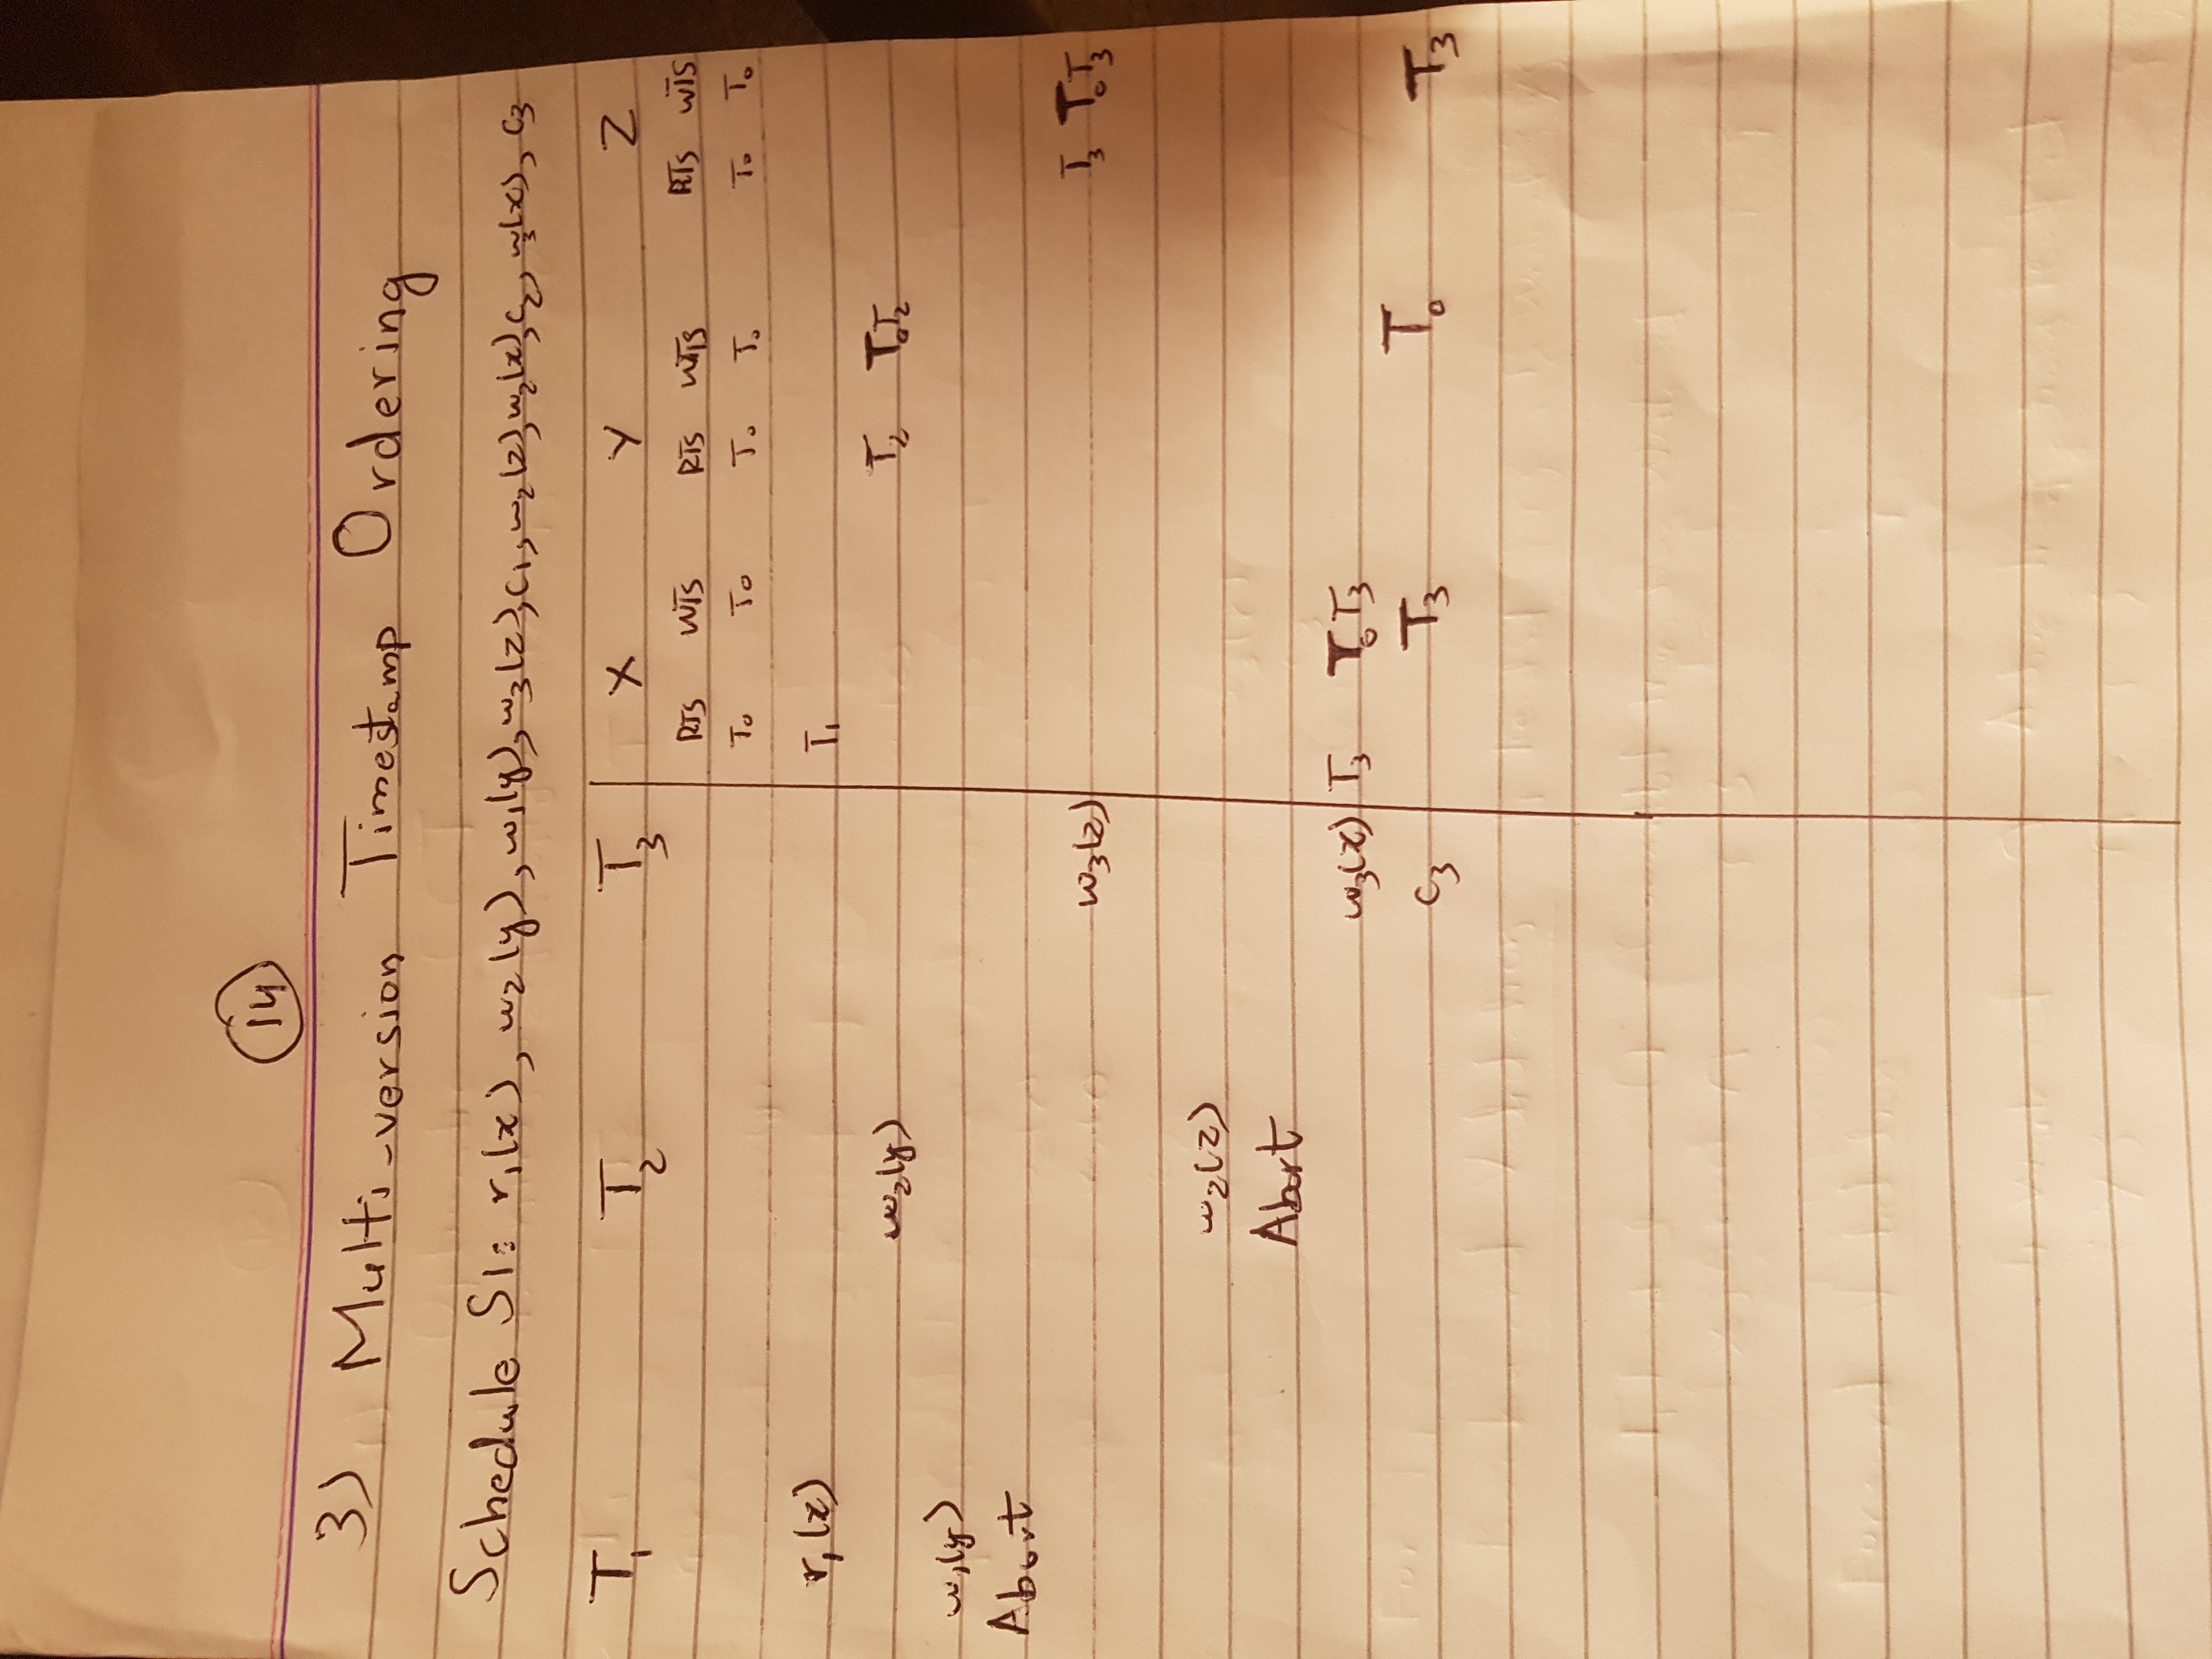 14
3) Multi-version Timestamp Ordering
Schedule S1: r₁(x), w₂(y), w₁(y), w₃(z), c₁, w₂(z), w₂(x), c₂, w₃(x), c₃
T₁ T₂ T₃ X Y Z
RTS WTS RTS WTS RTS WTS
T₀ T₀ T₀ T₀ T₀ T₀
r₁(x) T₁
w₂(y) T₂ T₀T₂
w₁(y)
Abort
w₃(z) T₃ T₀T₃
w₂(z)
Abort
w₃(x) T₃ T₀T₃
c₃ T₃ T₀ T₃